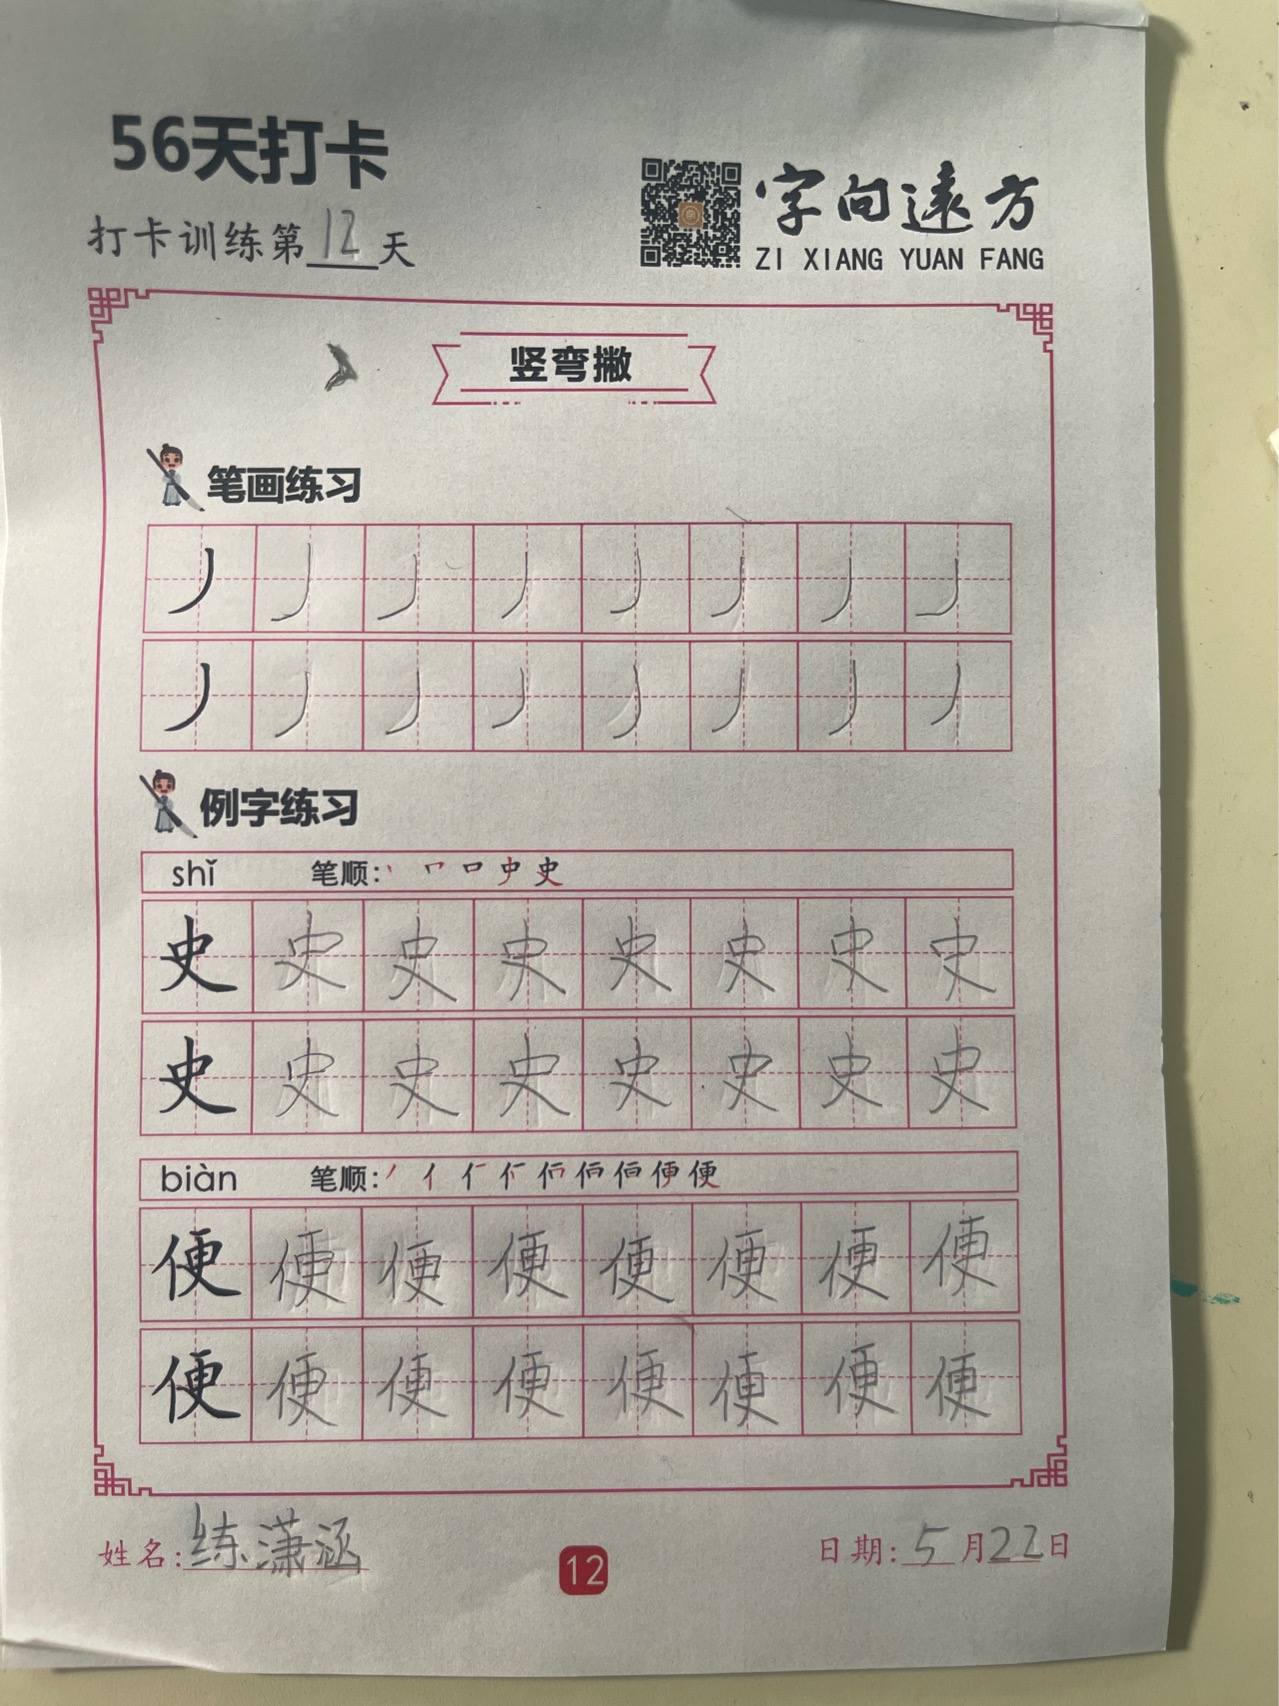 56天打卡
打卡训练第12天
字向遠方
ZI XIANG YUAN FANG
竖弯撇
笔画练习
丿丿丿丿丿丿丿丿
丿丿丿丿丿丿丿丿
例字练习
shǐ 笔顺: 丶 𠃍 口 史 史
史史史史史史史史
史史史史史史史史
biàn 笔顺: 丿 亻 便 便
便便便便便便便便
便便便便便便便便
姓名:练潇涵
12
日期:5月22日